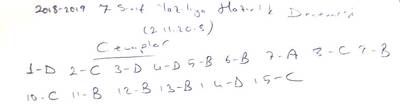 2018-2019 7. Sınıf Yazılıya Hazırlık Denemesi
(2.11.2018)
Cevaplar
1-D 2-C 3-D 4-D 5-B 6-B 7-A 8-C 9-B
10-C 11-B 12-B 13-B 14-D 15-C